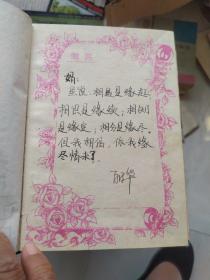 娟:
虽说:相见是缘起,
相识是缘续;相知
是缘定;相分是缘尽,
但我相信,你我缘
尽情未了